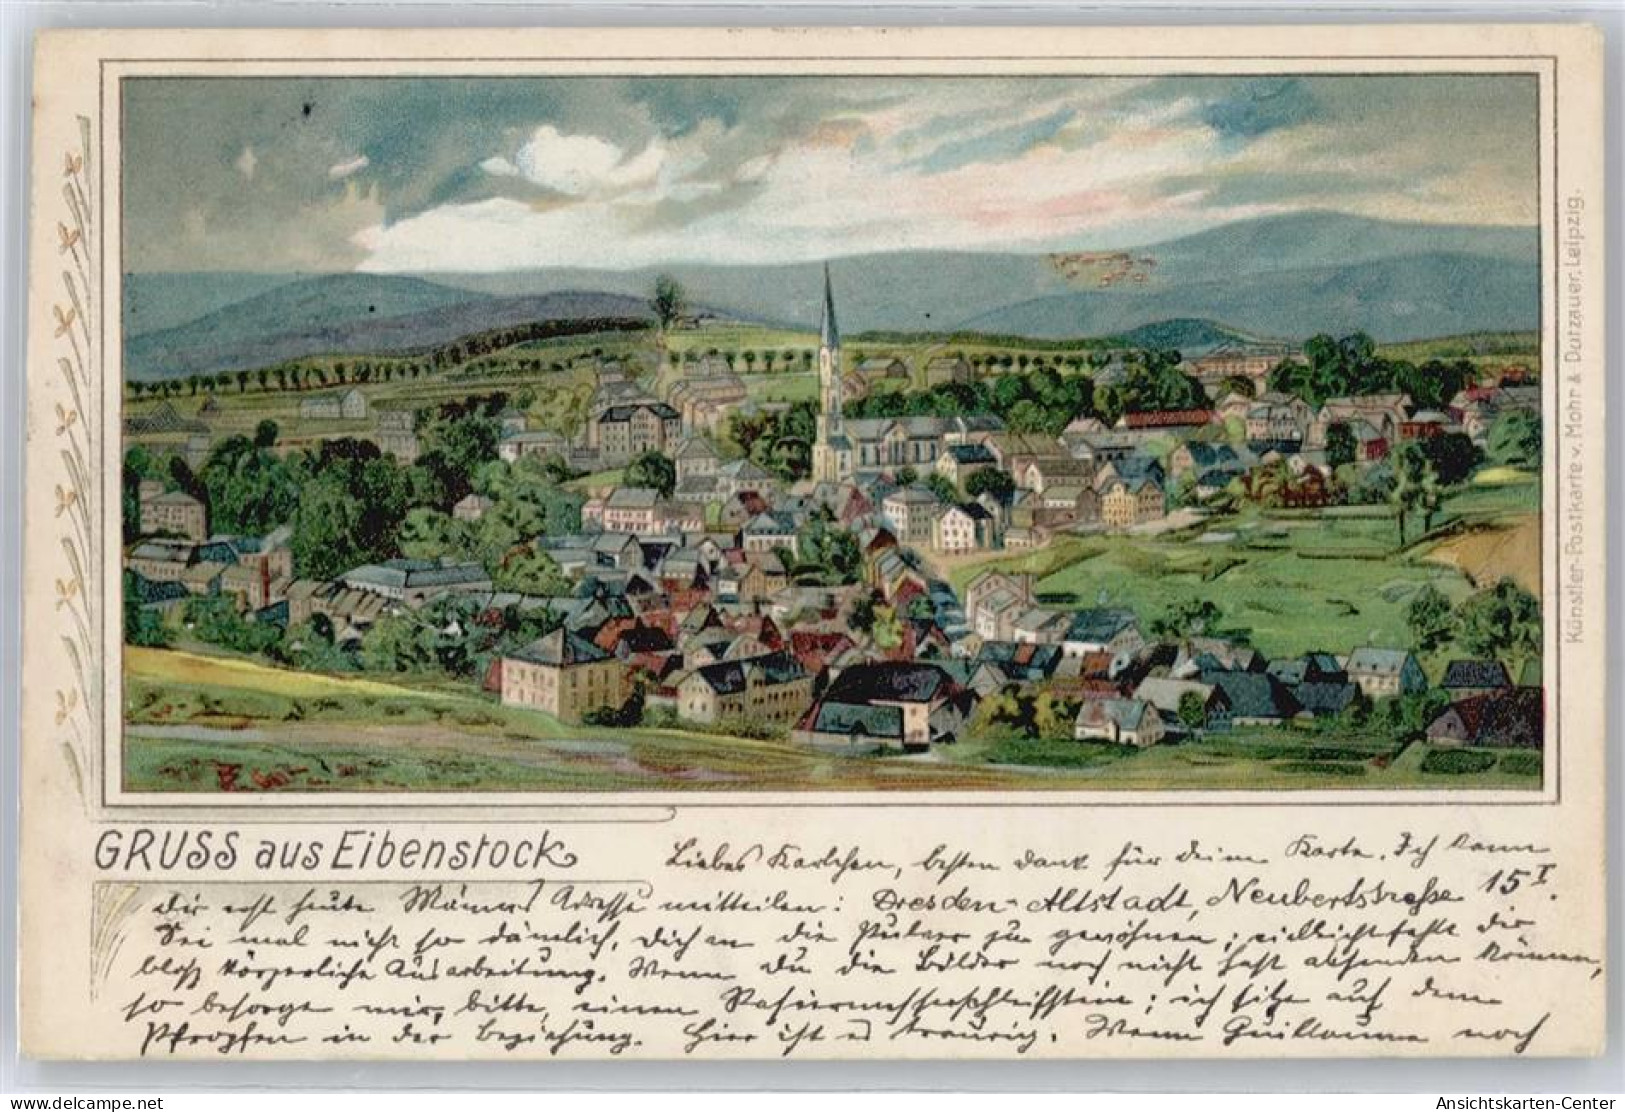 Künstler-Postkarte v. Mohr & Dutzauer, Leipzig.
GRUSS aus Eibenstock
Liebes Karlchen, besten Dank für deine Karte. Ich kann
dir erst heute Männes Adresse mitteilen: Dresden-Altstadt, Neubertstrasse 15 I.
Sei mal nicht so dämlich, dich an die Pulver zu gewöhnen; vielleicht fehlt dir
bloß körperliche Ausarbeitung. Wenn du die Bilder noch nicht hast absenden können,
so besorge mir, bitte, einen Rasiermesserschleifstein; ich sitze auf dem
Pfropfen in der Beziehung. Hier ist es traurig. Wenn Guillaume noch
www.delcampe.net
Ansichtskarten-Center